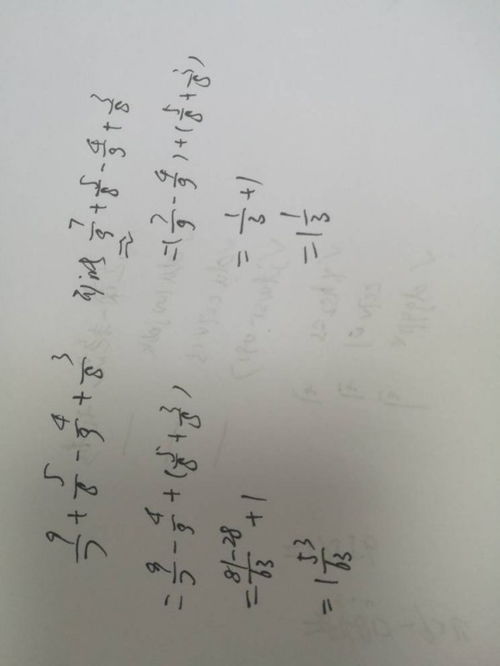 9/7 + 5/8 - 4/9 + 3/8
= 9/7 - 4/9 + (5/8 + 3/8)
= 81-28/63 + 1
= 1 53/63
7/9 + 5/8 - 4/9 + 3/8
= (7/9 - 4/9) + (5/8 + 3/8)
= 1/3 + 1
= 1 1/3